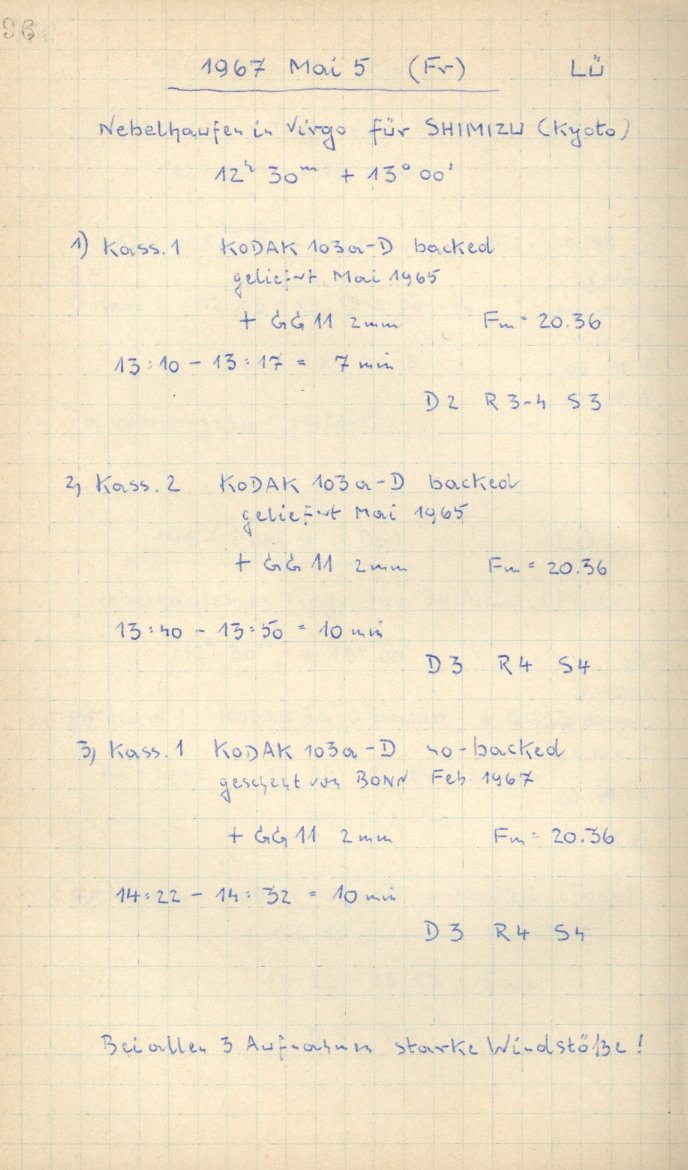 96
1967 Mai 5 (Fr) LÜ
Nebelhaufen in Virgo für SHIMIZU (Kyoto)
12ʰ 30ᵐ + 13° 00'
1) Kass. 1 KODAK 103a-D backed
geliefert Mai 1965
+ GG 11 2mm Fm = 20.36
13:10 - 13:17 = 7 min
D2 R 3-4 S3
2) Kass. 2 KODAK 103a-D backed
geliefert Mai 1965
+ GG 11 2mm Fm = 20.36
13:40 - 13:50 = 10 min
D3 R4 S4
3) Kass. 1 KODAK 103a-D no-backed
geschenkt von BONN Feb 1967
+ GG 11 2mm Fm = 20.36
14:22 - 14:32 = 10 min
D3 R4 S4
Bei allen 3 Aufnahmen starke Windstöße!